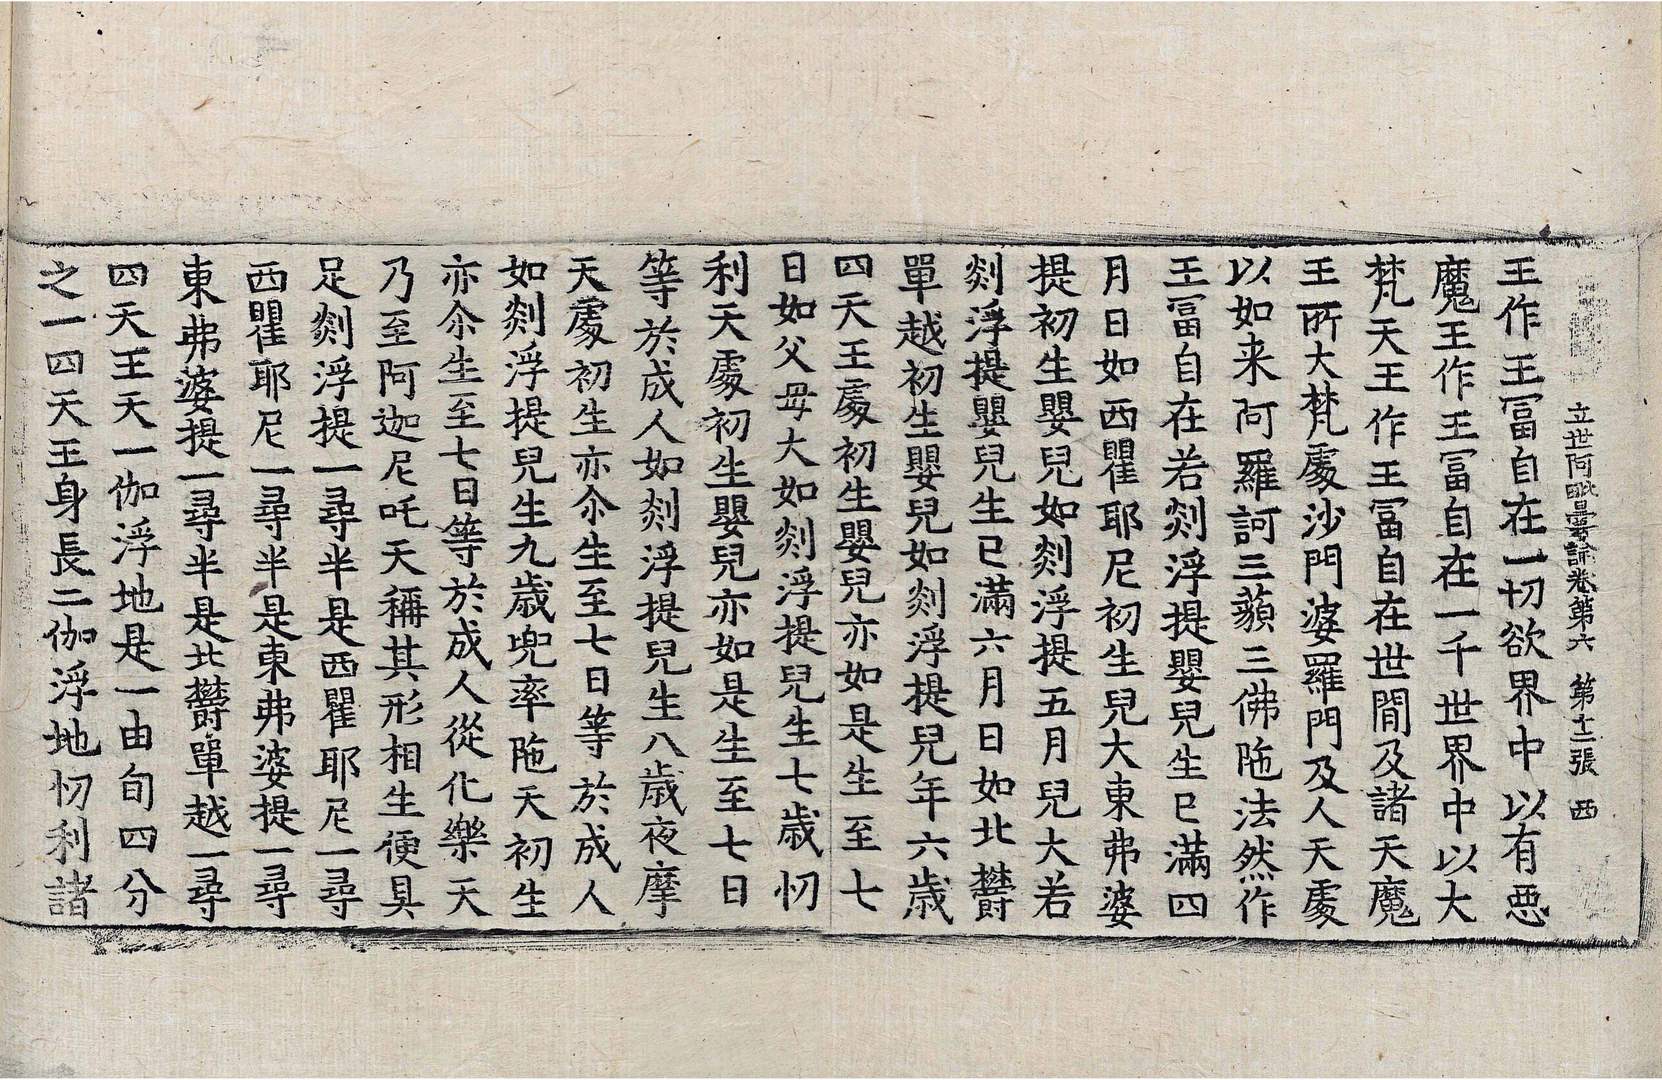 立世阿毗曇論卷第六 第十二張 西
王作王冨自在一切欲界中以有惡
魔王作王冨自在一千世界中以大
梵天王作王冨自在世間及諸天魔
王所大梵處沙門婆羅門及人天處
以如来阿羅訶三藐三佛陁法然作
王冨自在若剡浮提嬰兒生已滿四
月日如西瞿耶尼初生兒大東弗婆
提初生嬰兒如剡浮提五月兒大若
剡浮提嬰兒生已滿六月日如北欝
單越初生嬰兒如剡浮提兒年六歲
四天王處初生嬰兒亦如是生至七
日如父母大如剡浮提兒生七歲忉
利天處初生嬰兒亦如是生至七日
等於成人如剡浮提兒生八歲夜摩
天處初生亦尒生至七日等於成人
如剡浮提兒生九歲兜率陁天初生
亦尒生至七日等於成人從化樂天
乃至阿迦尼吒天稱其形相生便具
足剡浮提一尋半是西瞿耶尼一尋
西瞿耶尼一尋半是東弗婆提一尋
東弗婆提一尋半是北欝單越一尋
四天王天一伽浮地是一由旬四分
之一四天王身長二伽浮地忉利諸